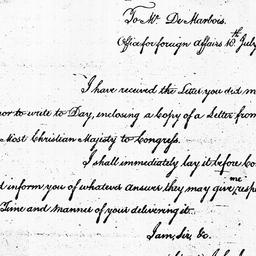 To Mr. De Marbois.
Office for foreign Affairs 10th July
I have received the Letter you did m
nor to write to Day, enclosing a Copy of a Letter from
Most Christian Majesty to Congress.
I shall immediately lay it before Co
d inform you of whatever answer they may give me, resp
Time and Manner of your delivering it.
I am, Sir, &c.